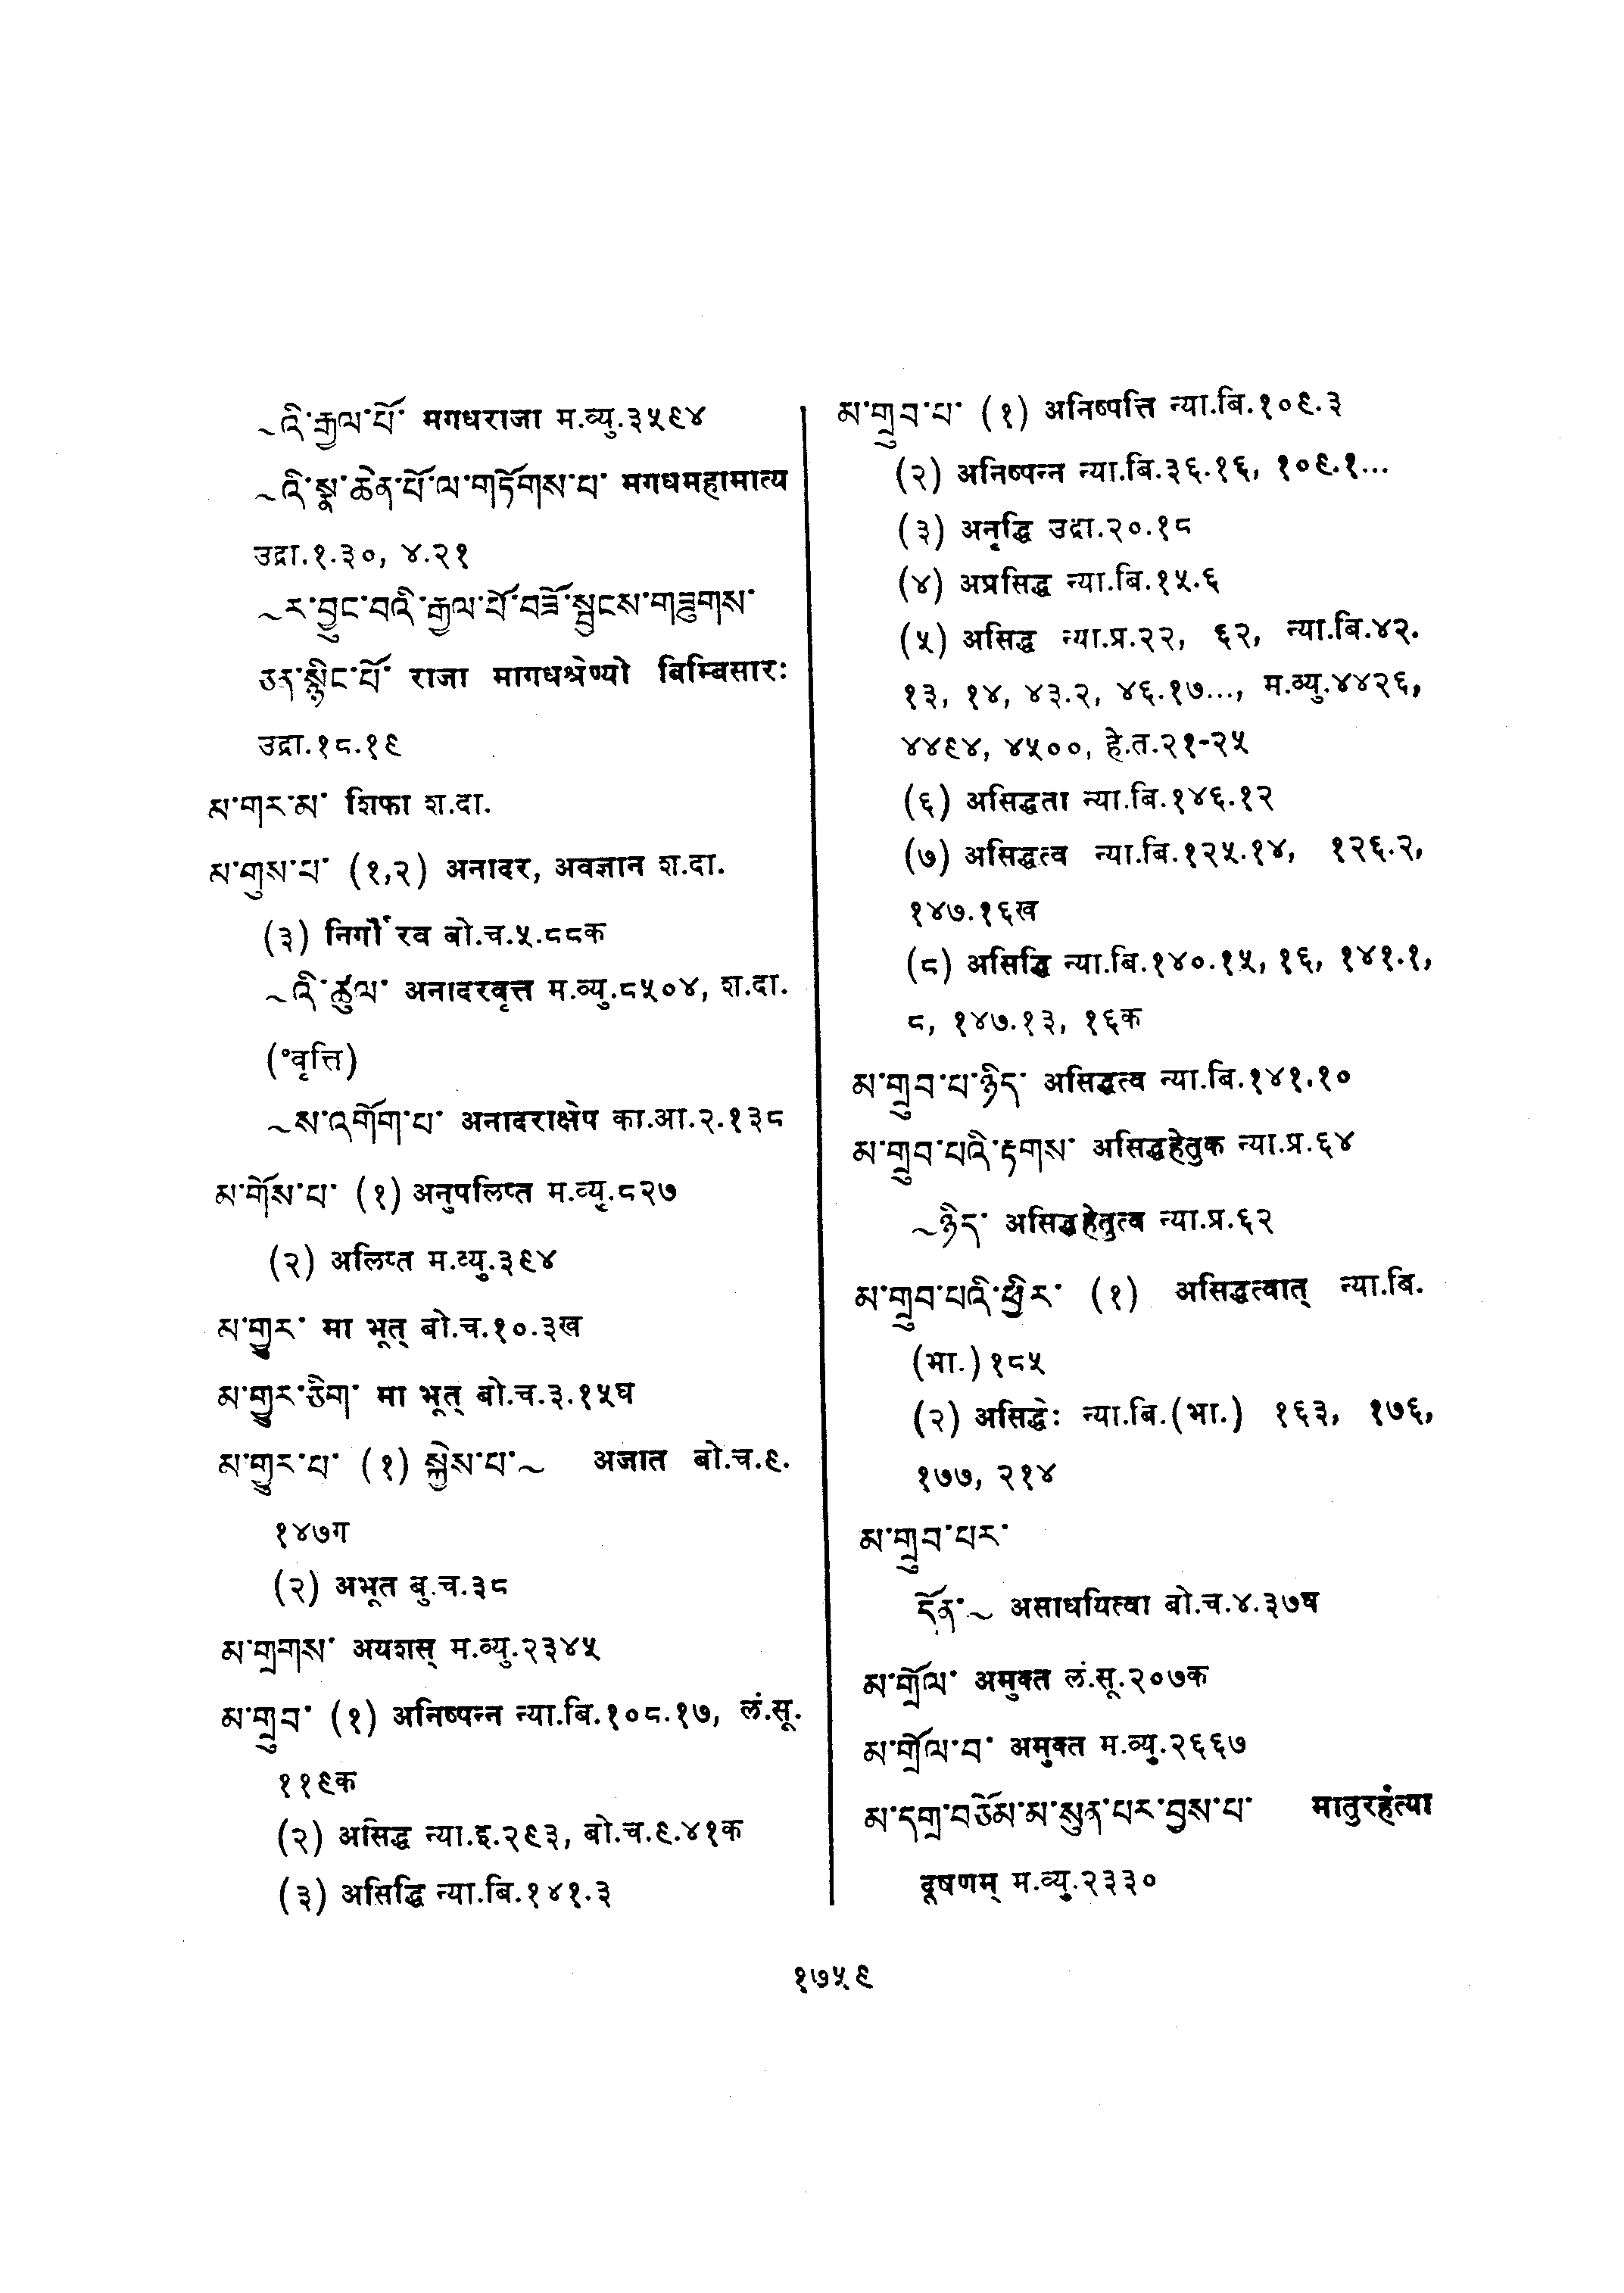 ~འི་རྒྱལ་པོ་ मगधराजा म.व्यु.३५९४
~འི་སྣ་ཆེན་པོ་ལ་གཏོགས་པ་ मगधमहामात्य
उद्रा.१.३०, ४.२१
~ར་བྱུང་བའི་རྒྱལ་པོ་བཟོ་སྦྱངས་གཟུགས་
ཅན་སྙིང་པོ་ राजा मागधश्रेण्यो बिम्बिसारः
उद्रा.१८.१९
མ་གར་མ་ शिफा श.दा.
མ་གུས་པ་ (१,२) अनादर, अवज्ञान श.दा.
(३) निर्गौरव बो.च.५.८८क
~འི་ཚུལ་ अनादरवृत्त म.व्यु.८५०४, श.दा.
(°वृत्ति)
~ས་འགོག་པ་ अनादराक्षेप का.आ.२.१३८
མ་གོས་པ་ (१) अनुपलिप्त म.व्यु.८२७
(२) अलिप्त म.व्यु.३९४
མ་གྱུར་ मा भूत् बो.च.१०.३ख
མ་གྱུར་ཅིག་ मा भूत् बो.च.३.१५घ
མ་གྱུར་པ་ (१) སྐྱེས་པ་~ अजात बो.च.९.
१४७ग
(२) अभूत बु.च.३८
མ་གྲགས་ अयशस् म.व्यु.२३४५
མ་གྲུབ་ (१) अनिष्पन्न न्या.बि.१०८.१७, लं.सू.
११९क
(२) असिद्ध न्या.इ.२९३, बो.च.९.४१क
(३) असिद्धि न्या.बि.१४१.३
མ་གྲུབ་པ་ (१) अनिष्पत्ति न्या.बि.१०९.३
(२) अनिष्पन्न न्या.बि.३६.१६, १०९.१...
(३) अनृद्धि उद्रा.२०.१८
(४) अप्रसिद्ध न्या.बि.१५.६
(५) असिद्ध न्या.प्र.२२, ६२, न्या.बि.४२.
१३, १४, ४३.२, ४६.१७..., म.व्यु.४४२६,
४४९४, ४५००, हे.त.२१-२५
(६) असिद्धता न्या.बि.१४६.१२
(७) असिद्धत्व न्या.बि.१२५.१४, १२६.२,
१४७.१६ख
(८) असिद्धि न्या.बि.१४०.१५, १६, १४१.१,
८, १४७.१३, १६क
མ་གྲུབ་པ་ཉིད་ असिद्धत्व न्या.बि.१४१.१०
མ་གྲུབ་པའི་རྟགས་ असिद्धहेतुक न्या.प्र.६४
~ཉིད་ असिद्धहेतुत्व न्या.प्र.६२
མ་གྲུབ་པའི་ཕྱིར་ (१) असिद्धत्वात् न्या.बि.
(भा.) १८५
(२) असिद्धेः न्या.बि.(भा.) १६३, १७६,
१७७, २१४
མ་གྲུབ་པར་
དོན་~ असाधयित्वा बो.च.४.३७घ
མ་གྲོལ་ अमुक्त लं.सू.२०७क
མ་གྲོལ་བ་ अमुक्त म.व्यु.२६६७
མ་དགྲ་བཅོམ་མ་སུན་པར་བྱས་པ་ मातुरर्हंत्या
दूषणम् म.व्यु.२३३०
१७५९